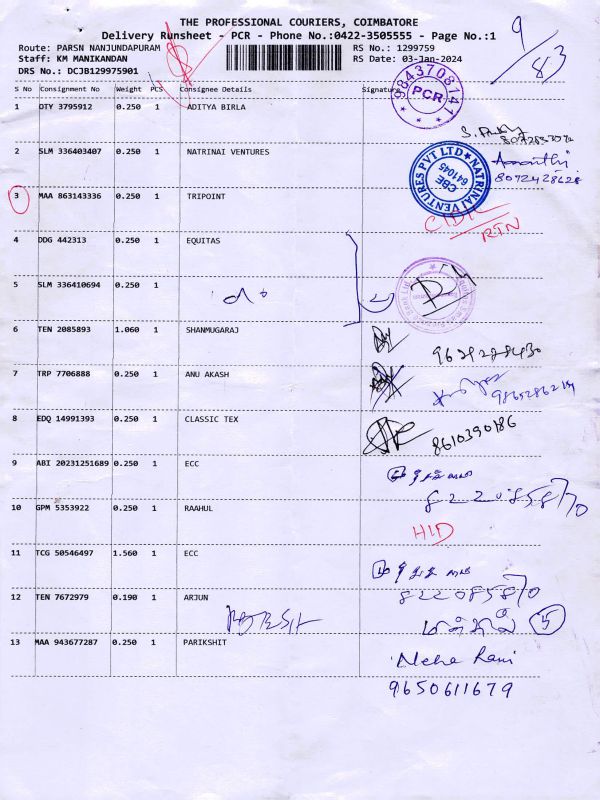 THE PROFESSIONAL COURIERS, COIMBATORE
Delivery Runsheet - PCR - Phone No.:0422-3505555 - Page No.:1
9/83
Route: PARSN NANJUNDAPURAM RS No.: 1299759
Staff: KM MANIKANDAN RS Date: 03-Jan-2024
DRS No.: DCJB129975901
S No Consignment No Weight PCS Consignee Details Signature
9843708141
PCR
1 DTY 3795912 0.250 1 ADITYA BIRLA
2 SLM 336403407 0.250 1 NATRINAI VENTURES
NATRINAI VENTURES PVT LTD
CBE
641045
8092428628
3 MAA 863143336 0.250 1 TRIPOINT
RTN
4 DDG 442313 0.250 1 EQUITAS
5 SLM 336410694 0.250 1
do
6 TEN 2085893 1.060 1 SHANMUGARAJ
7 TRP 7706888 0.250 1 ANU AKASH
8 EDQ 14991393 0.250 1 CLASSIC TEX
8610390186
9 ABI 20231251689 0.250 1 ECC
822085870
10 GPM 5353922 0.250 1 RAAHUL
H/D
11 TCG 50546497 1.560 1 ECC
822085870
12 TEN 7672979 0.190 1 ARJUN
5
13 MAA 943677287 0.250 1 PARIKSHIT
Neha Rani
9650611679